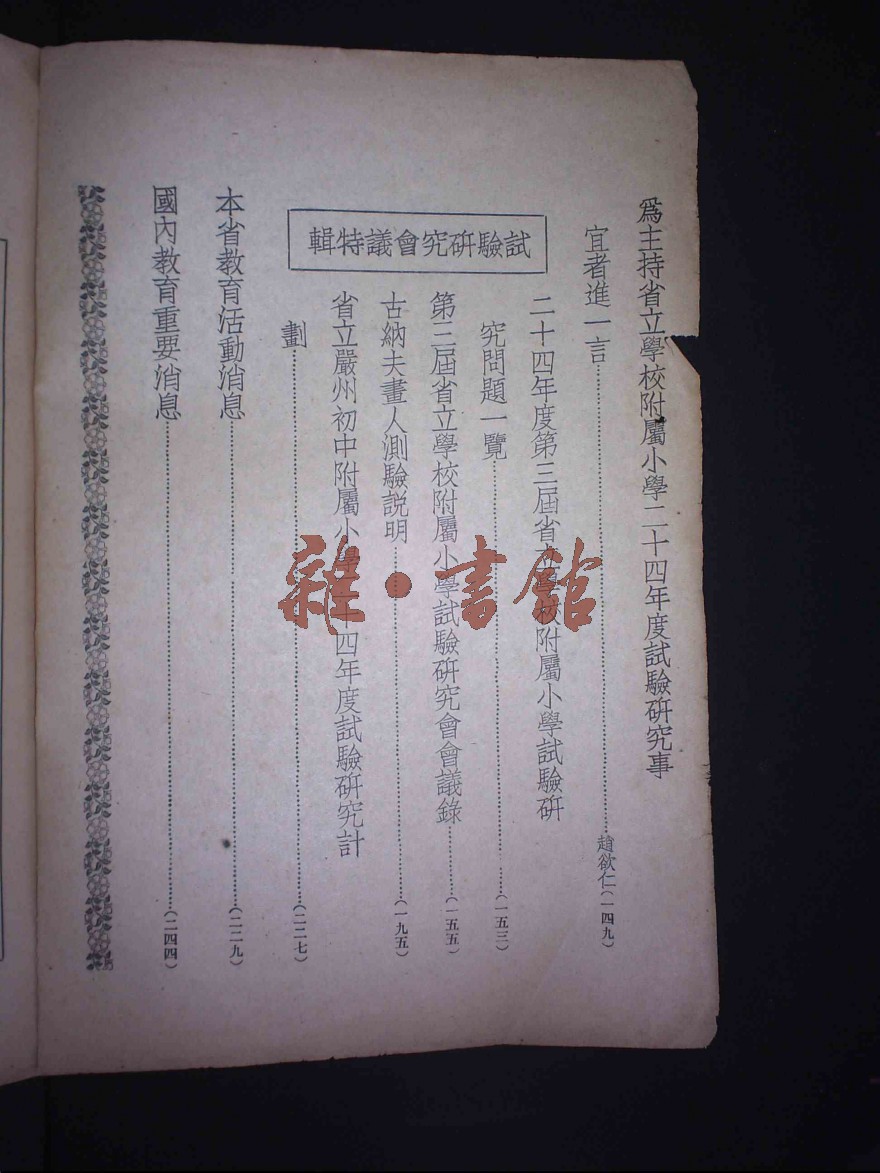 爲主持省立學校附屬小學二十四年度試驗硏究事
宜者進一言…………趙欲仁(一四九)
試驗硏究會議特輯
二十四年度第三屆省立學校附屬小學試驗硏
究問題一覽…………(一五三)
第三屆省立學校附屬小學試驗硏究會會議錄…………(一五五)
古納夫畫人測驗説明…………(一九五)
省立嚴州初中附屬小學二十四年度試驗硏究計
劃…………(二二七)
本省教育活動消息…………(二二九)
國內教育重要消息…………(二四四)
雜·書館